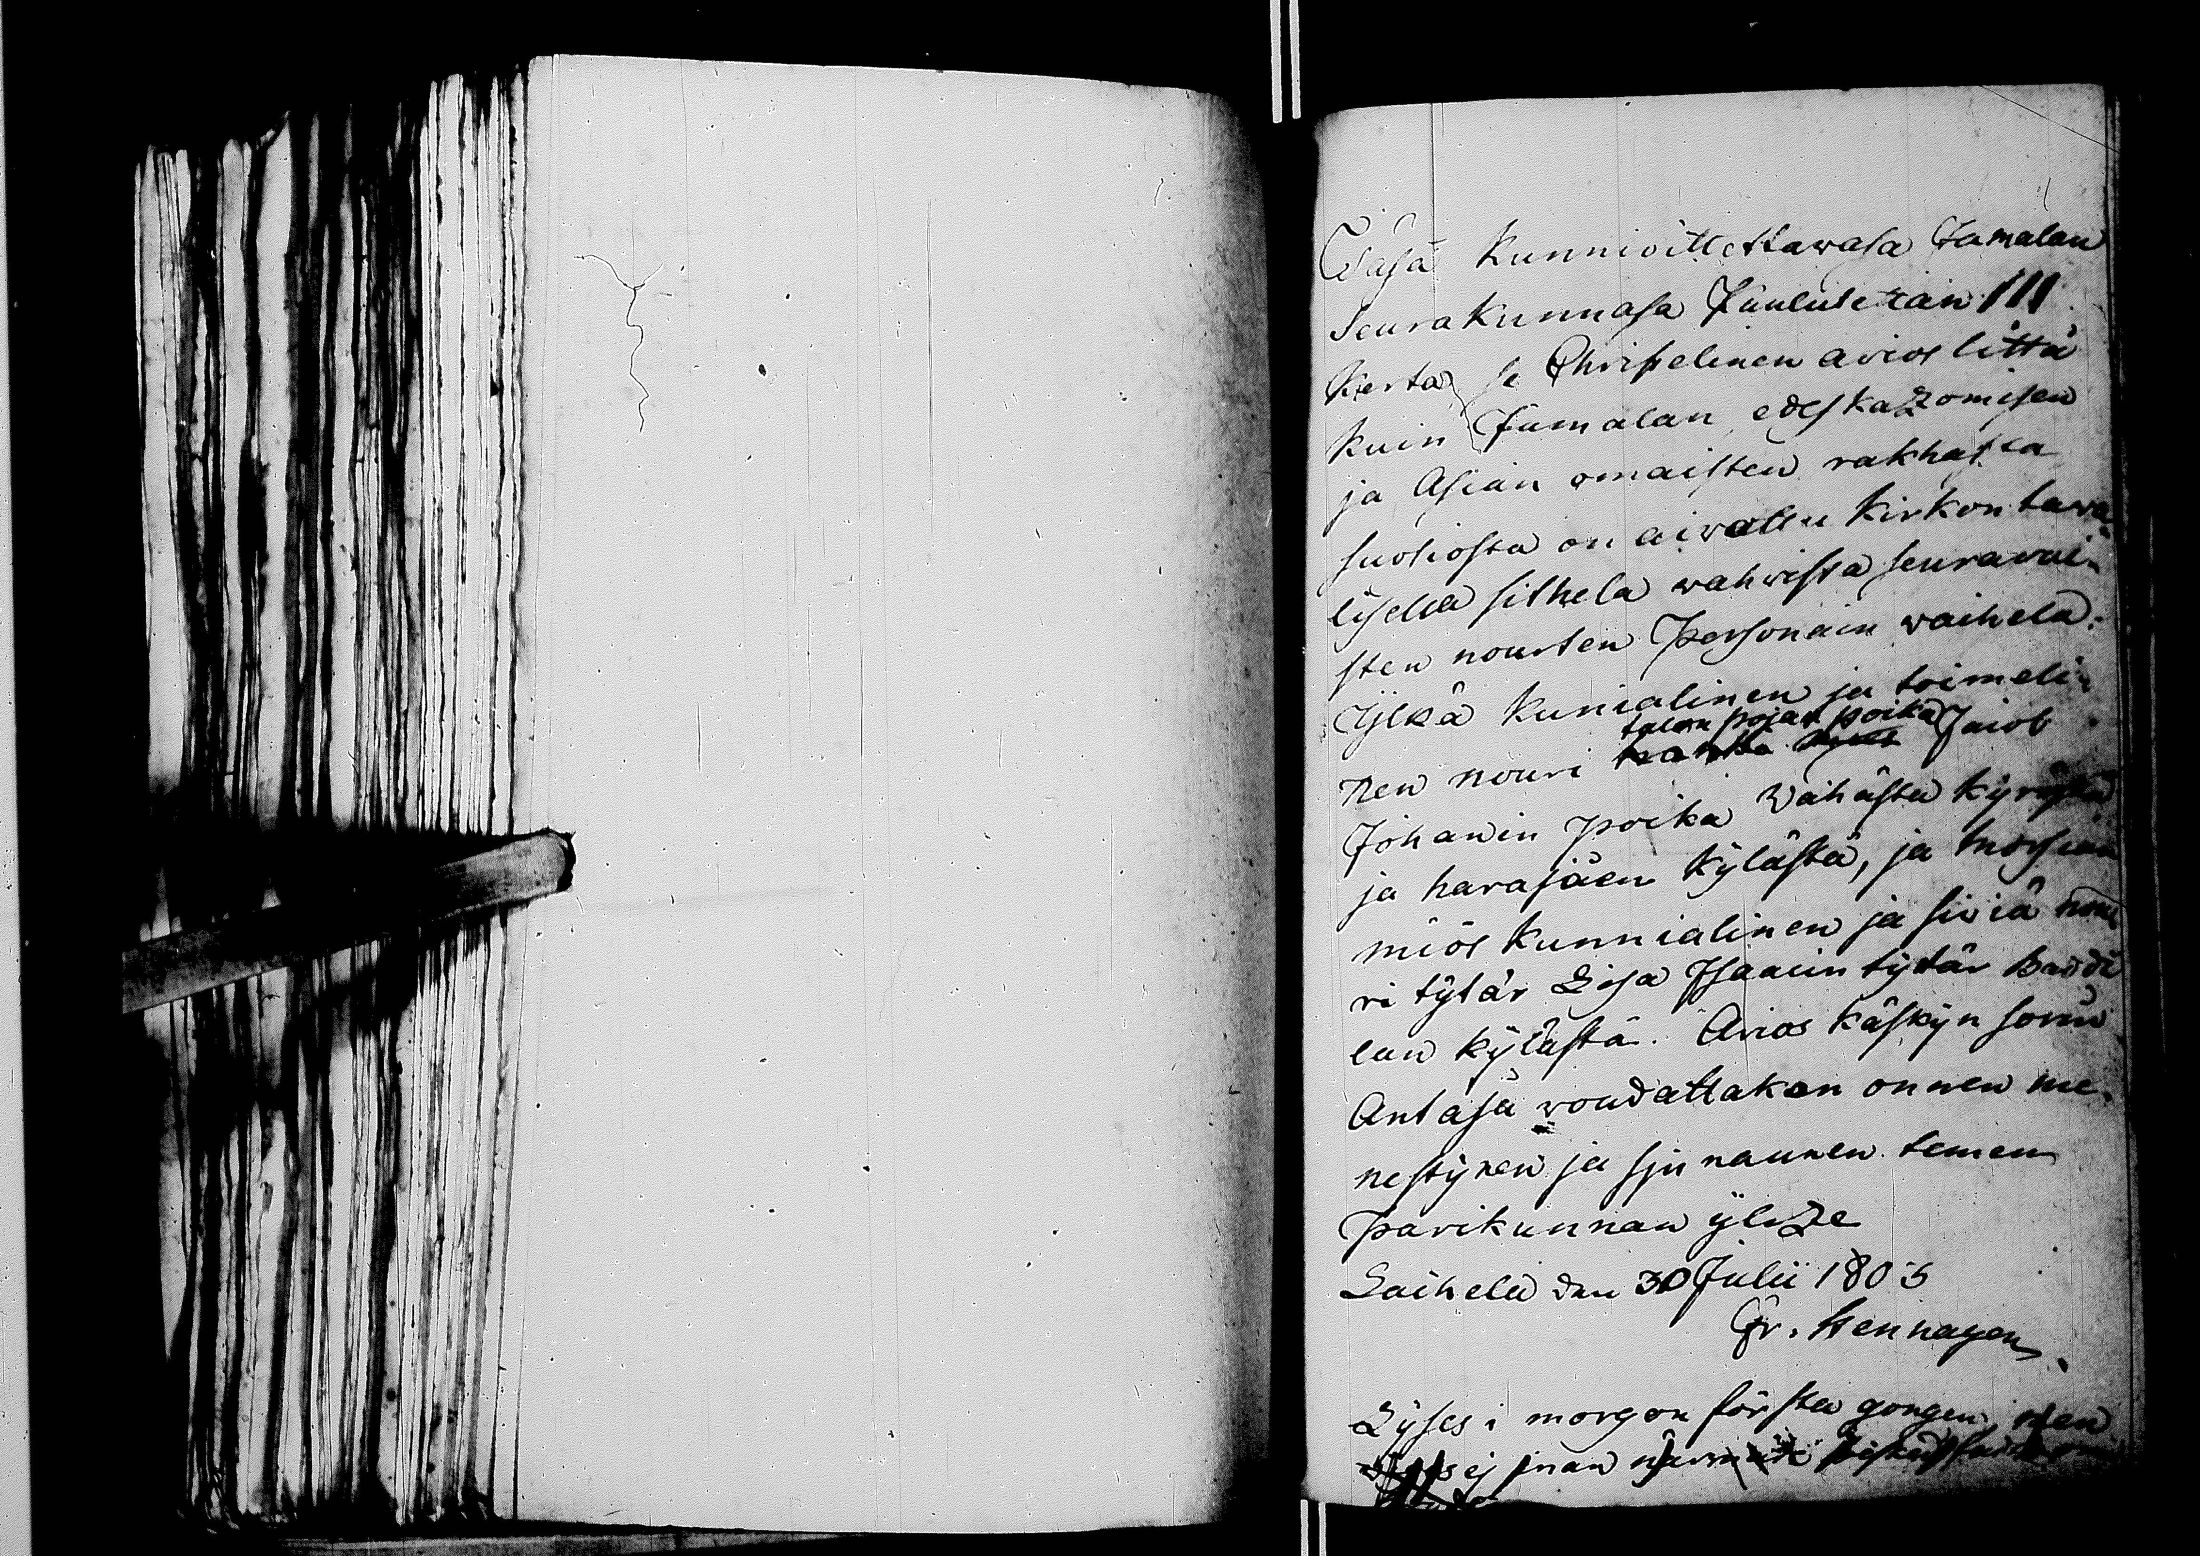 Täsä Kunnioittettavasa Jumalan
Seurakunnasa Kuulutetan III
Kerta se Christelinen avios littä
kuin Jumalan edeskazomisen
ja Asian omaisten rakhasta
suosiosta on aivattu kirkon tava-
lisella sithela wahvista seuravai-
sten nourten Personain vaihela:
Ylkä kunialinen ja toimeli-
nen nouri talon pojan poika Jaiob
Johanin poika Wähästä kyröstä
ja harajäen kylästä, ja morsian
miös kunnialinen ja siviä nou
ri tytär Lisa Isaacin tytär Bardi
lan kylästä. Avios käskyn sovin
Antasa voudattakan onnen me-
nestyxen ja sjunauxen temen
Parikunnan ylize
Laihela den 30 Julii 1805
Gr. Hennagen
Lyses i morgon första gongen, men
ej innan